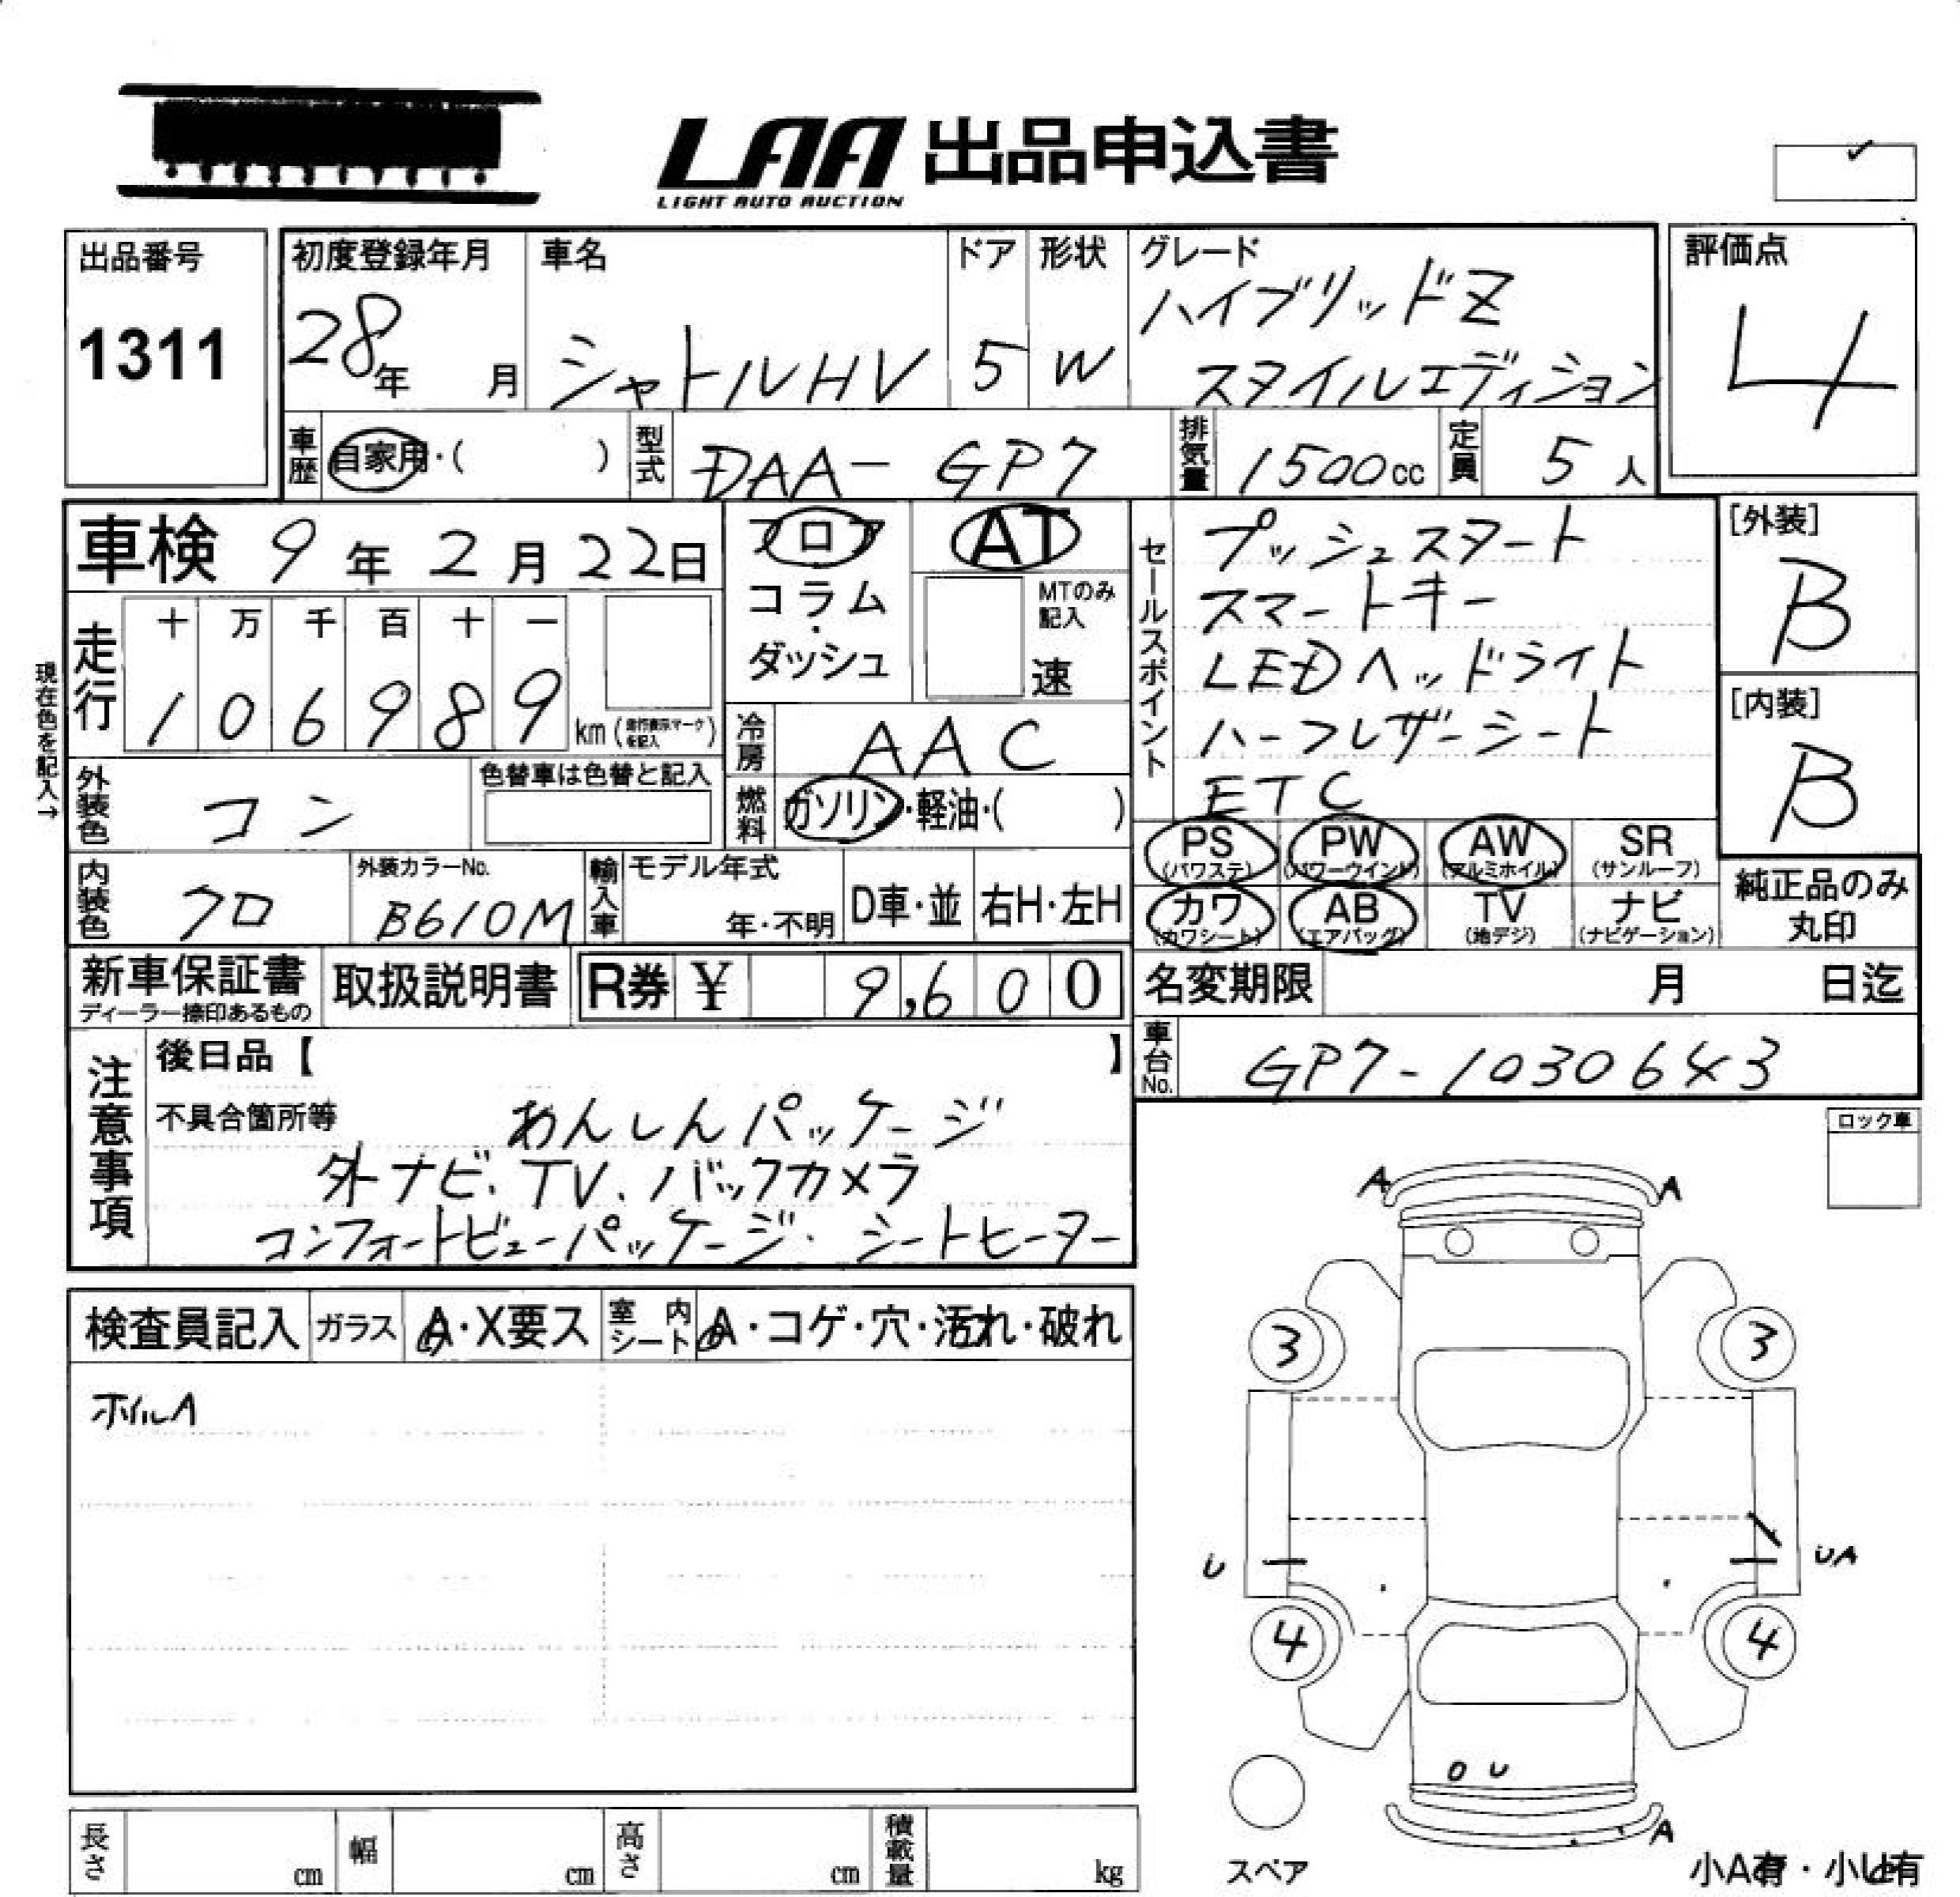 LAA 出品申込書
LIGHT AUTO AUCTION
出品番号
1311
初度登録年月
28年 月
車名
シャトルHV
ドア
5
形状
W
グレード
ハイブリッドZ
スタイルエディション
評価点
4
車歴 自家用・( )
型式 DAA-GP7
排気量 1500cc
定員 5人
車検 9年2月22日
フロア
コラム
・
ダッシュ
AT
MTのみ
記入
速
セールスポイント
プッシュスタート
スマートキー
LEDヘッドライト
ハーフレザーシート
ETC
[外装]
B
[内装]
B
現在色を記入→
走行
十 万 千 百 十 一
1 0 6 9 8 9 km(走行表示マークを記入)
冷房 AAC
燃料 ガソリン・軽油・( )
外装色 コン
色替車は色替と記入
内装色 クロ
外装カラーNo.
B610M
輸入車
モデル年式
年・不明
D車・並
右H・左H
PS (パワステ)
PW (パワーウインド)
AW (アルミホイル)
SR (サンルーフ)
カワ (カワシート)
AB (エアバッグ)
TV (地デジ)
ナビ (ナビゲーション)
純正品のみ
丸印
新車保証書
ディーラー捺印あるもの
取扱説明書
R券 ¥ 9,600
名変期限 月 日迄
車台No. GP7-1030643
注意事項
後日品【 】
不具合箇所等 あんしんパッケージ
外ナビ、TV、バックカメラ
コンフォートビューパッケージ・シートヒーター
ロック車
検査員記入
ガラス A・X要ス
室内シート A・コゲ・穴・汚れ・破れ
ホイルA
A A
3 3
U UA
4 4
O U
A
スペア
小A有・小U有
長さ cm
幅 cm
高さ cm
積載量 kg